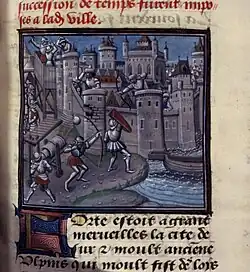 succession de temps furent impo
ses a lad. ville.
Orte estoit a grant
merveilles la cite de
sur & moult anciene
Vlpiins qui moult fist de lois